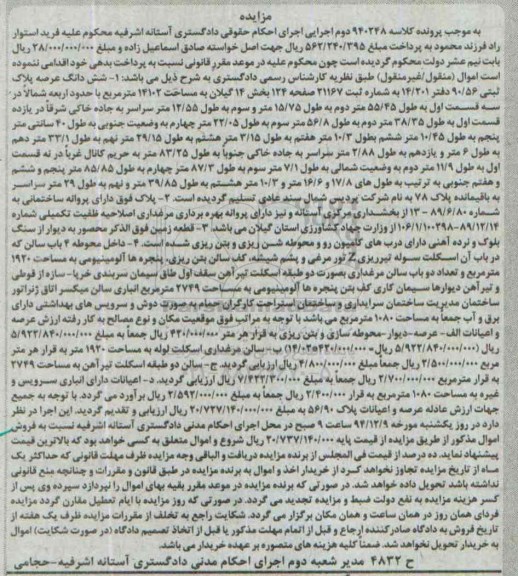 مزایده
به موجب پرونده کلاسه ۹۴۰۲۴۸ دوم اجرایی اجرای احکام حقوقی دادگستری آستانه اشرفیه محکوم علیه فرید استوار
راد فرزند محمود به پرداخت مبلغ ۵۶۲/۲۴۰/۳۹۵ ریال جهت اصل خواسته صادق اسماعیل زاده و مبلغ ۲۸/۰۰۰/۰۰۰ ریال
بابت نیم عشر دولت محکوم گردیده است چون محکوم علیه در موعد مقرر قانونی نسبت به پرداخت بدهی خود اقدامی ننموده
است اموال (منقول/غیرمنقول) طبق نظریه کارشناس رسمی دادگستری به شرح ذیل می باشد: ۱- شش دانگ عرصه پلاک
ثبتی ۵۶/۹۰ دفتر ۱۴/۲۰۱ به شماره ثبت ۲۱۱۶۷ صفحه ۱۲۴ بخش ۱۴ گیلان به مساحت ۱۴۱۰۲ مترمربع با حدود اربعه شمالاً در
سه قسمت اول به طول ۵۵/۴۵ متر دوم به طول ۱۵/۷۵ متر و سوم به طول ۱۲/۵۵ متر سراسر به جاده خاکی شرقاً در یازده
قسمت اول به طول ۳۸/۳۵ متر دوم به طول ۵۶/۸ متر سوم به طول ۲۲/۰۵ متر چهارم به وضعیت جنوبی به طول ۴۰ سانتی متر
پنجم به طول ۱۰/۴۵ متر ششم بطول ۱۰/۳ متر هفتم به طول ۳/۱۵ متر هشتم به طول ۲۹/۱۵ متر نهم به طول ۳۳/۱ متر دهم
به طول ۶ متر و یازدهم به طول ۲/۸۸ متر سراسر به جاده خاکی جنوباً به طول ۸۳/۲۵ متر به حریم کانال غرباً در نه قسمت
اول به طول ۱۱/۹ متر دوم به وضعیت شمالی به طول ۷/۱ متر سوم به طول ۸۷/۳ متر چهارم به طول ۸۵/۸۵ متر پنجم و ششم و
و هفتم جنوبی به ترتیب به طول های ۱۷/۸ و ۱۶/۶ متر و ۱۰/۳ متر هشتم به طول ۳۹/۸۵ متر و نهم به طول ۲۹ متر سراسر
به باقیمانده پلاک ۷۸ به نام شرکت پردیس شمال بسند عادی تسلیم گردیده است. ۲- پلاک فوق دارای پروانه ساختمانی به
شماره ۸۹/۶/۸۰ – ۱۳ از بخشداری مرکزی آستانه و نیز دارای پروانه بهره برداری مرغداری اصلاحیه ظرفیت تکمیلی شماره
۱۰۶/۱/۱۰۰۲۹۸-۸۹/۱۲/۱۴ از وزارت جهاد کشاورزی استان گیلان می باشد. ۳- قطعه زمین فوق الذکر محصور به دیوار از سنگ
بلوک و نرده آهنی دارای درب های کامیون رو و محوطه شن ریزی و بتن ریزی شده است. ۴- داخل محوطه ۴ باب سالن که
در باب آن اسکلت سوله تیرریزی Z تور مرغی و پشم شیشه، کف سالن بتن ریزی، پنجره ها آلومینیومی به مساحت ۱۹۲۰
مترمربع و تعداد دو باب سالن مرغداری بصورت دو طبقه اسکلت تیرآهن سقف اول طاق سیمان سربندی خرپا- سازه از قوطی
و تیرآهن دیوارها سیمان کاری کف بتن پنجره ها آلومینیومی به مساحت ۲۷۴۹ مترمربع انباری سالن میکسر اتاق ژنراتور
ساختمان مدیریت ساختمان سرایداری و ساختمان استراحت کارگران حمام به صورت دوش و سرویس های بهداشتی دارای
برق و آب جمعاً به مساحت ۱۰۸۰ مترمربع می باشد با توجه به مراتب فوق موقعیت مکان و نوع مصالح به کار رفته ارزش عرصه
و اعیانات الف- عرصه-دیوار-محوطه سازی و بتن ریزی به قرار هر متر ۴۲۰/۰۰۰ ریال جمعاً به مبلغ ۵/۹۲۲/۸۴۰/۰۰۰
ریال (۵/۹۲۲/۸۴۰/۰۰۰ ریال= ۴۲۰/۰۰۰*۱۴/۰۲) ب- سالن مرغداری اسکلت لوله به مساحت ۱۹۲۰ متر به قرار هر متر
مربع ۲/۵۰۰/۰۰۰ ریال جمعاً مبلغ ۴/۸۰۰/۰۰۰/۰۰۰ ریال ارزیابی گردید. ج- سالن دو طبقه اسکلت تیرآهن به مساحت ۲۷۴۹
به قرار مترمربع ۲/۷۰۰/۰۰۰ ریال جمعاً به مبلغ ۷/۴۲۲/۳۰۰/۰۰۰ ریال ارزیابی گردید. د- اعیانات دارای انباری سرویس و
غیره به مساحت ۱۰۸۰ مترمربع به قرار ۲/۴۰۰/۰۰۰ ریال جمعاً به مبلغ ۲/۵۹۲/۰۰۰/۰۰۰ ریال برآورد می گردد. با توجه به جمیع
جهات ارزش عادله عرصه و اعیانات پلاک ۵۶/۹۰ به مبلغ ۲۰/۷۳۷/۱۴۰/۰۰۰ ریال ارزیابی و تقدیم گردید. این اجرا در نظر
دارد در روز یکشنبه مورخه ۹۴/۱۲/۹ ساعت ۹ صبح در محل اجرای احکام مدنی دادگستری آستانه اشرفیه نسبت به فروش
اموال مذکور از طریق مزایده از قیمت پایه ۲۰/۷۳۷/۱۴۰/۰۰۰ ریال شروع و اموال متعلق به کسی خواهد بود که بالاترین قیمت
پیشنهاد نماید. ده درصد از قیمت فی المجلس از برنده مزایده دریافت و الباقی وجه مزایده ظرف مهلت قانونی که حداکثر یک
ماه از تاریخ مزایده تجاوز نخواهد کرد از خریدار اخذ و اموال به برنده مزایده در طبق قانون و مقررات و چنانچه منع قانونی
نداشته باشد تحویل داده خواهد شد. در صورتی که برنده مزایده در موعد مقرر بقیه بهای اموال را نپردازد سپرده وی پس از
کسر هزینه مزایده به نفع دولت ضبط و مزایده تجدید می گردد. در صورتی که روز مزایده با ایام تعطیل مقارن گردد مزایده
فردای همان روز در همان ساعت و همان مکان برگزار می گردد. شکایت راجع به تخلف از مقررات مزایده ظرف یک هفته از
تاریخ فروش به دادگاه صادرکننده ارجاع و قبل از اتمام مهلت مذکور یا قبل از اتخاذ تصمیم دادگاه (در صورت شکایت) اموال
به خریدار تحویل نخواهد شد. ضمناً کلیه هزینه های متصوره بر عهده خریدار می باشد.
ح ۴۸۳۲ مدیر شعبه دوم اجرای احکام مدنی دادگستری آستانه اشرفیه-حجامی